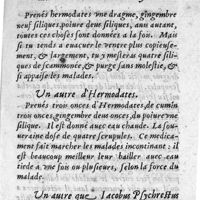 Prenés hermodates vne dragme, gingembre
neuf siliques, poiure deux siliques, aux autans,
toutes ces choses sont données à la fois. Mais
si tu tends a euacuer le ventre plus copieusement,
& largement, tu y mesleras quatre siliques
de scammonée, & purge sans moleste, &
si appaise les malades.
Un autre d'Hermodates.
Prenés trois onces d'Hermodates, de cumin
trois onces, gingembre deux onces, du poiure vne
silique. Il se donne auec eau chaude. La souueraine
dose de quatre scrupules. Ce medicament
fait marcher les malades incontinant: il
est beaucoup meilleur leur bailler auec eau
tiede a vne fois ou plusieurs, selon la force du
malade.
Un autre que Iacobus Psychrestus